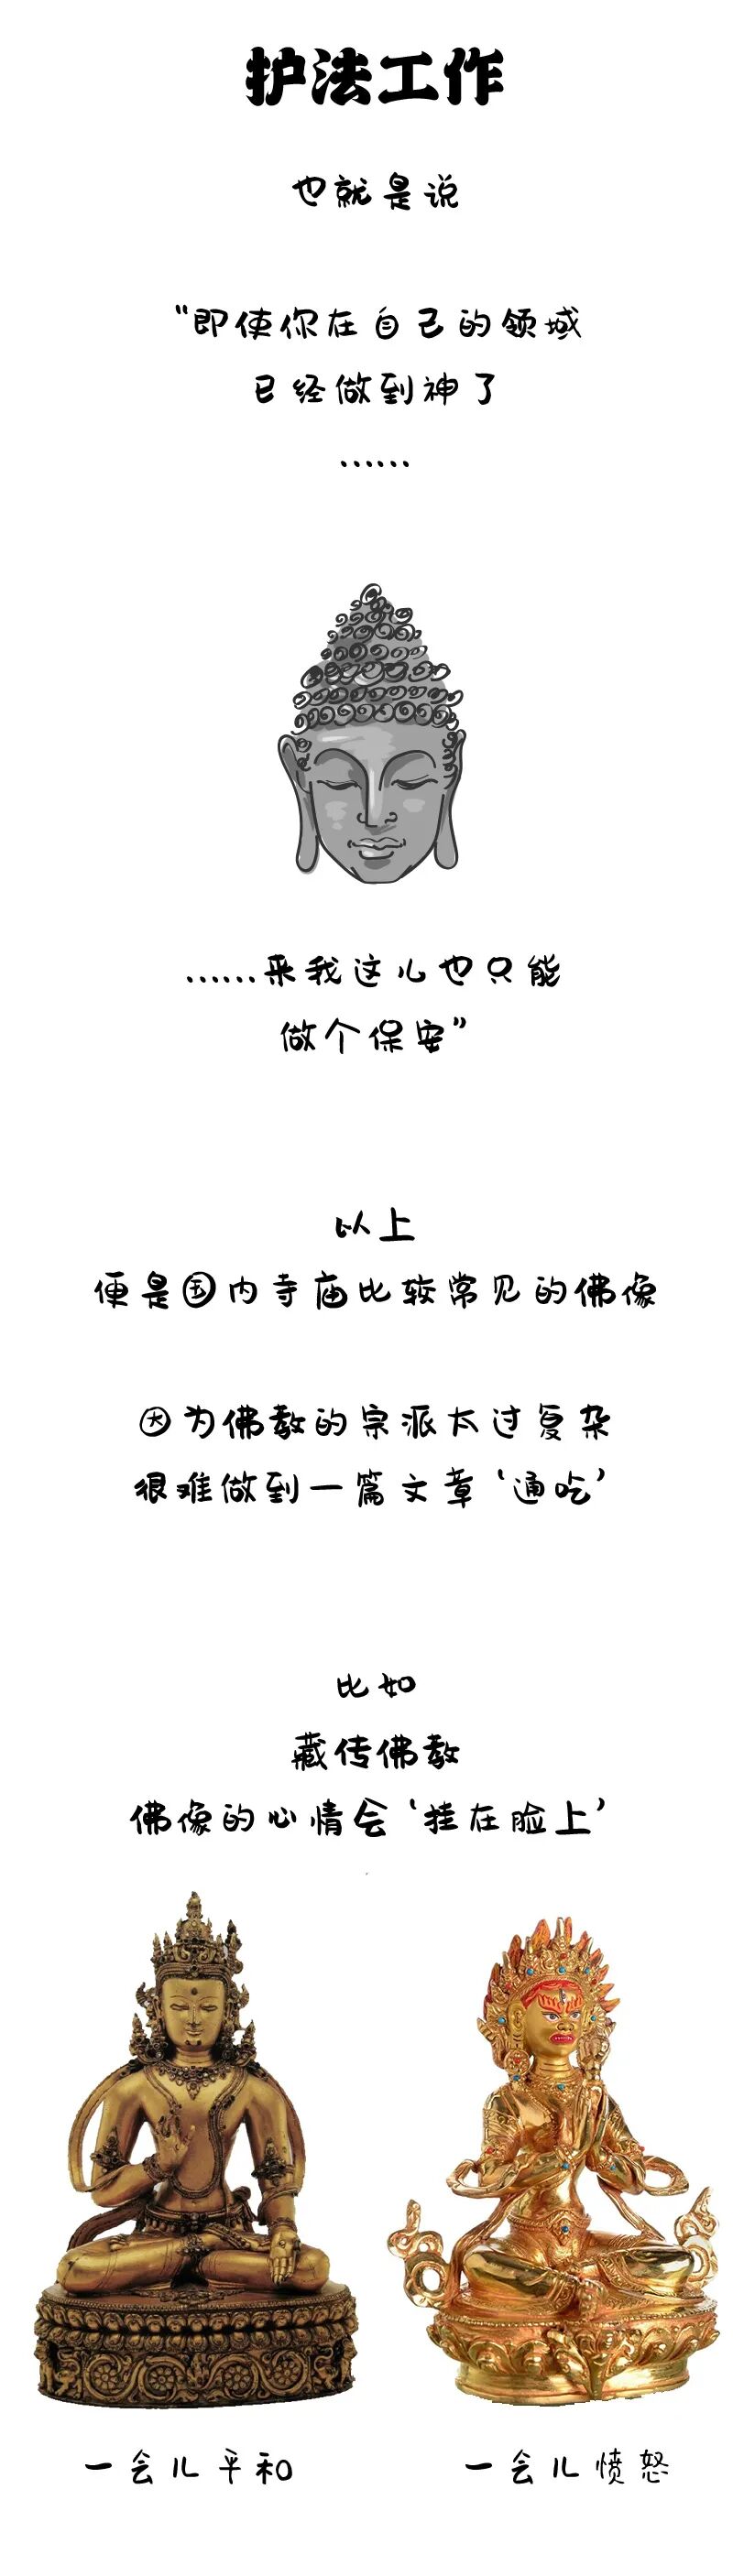 护法工作
也就是说
“即使你在自己的领域
已经做到神了
……
……来我这儿也只能
做个保安”
以上
便是国内寺庙比较常见的佛像
因为佛教的宗派太过复杂
很难做到一篇文章‘通吃’
比如
藏传佛教
佛像的心情会‘挂在脸上’
一会儿平和
一会儿愤怒